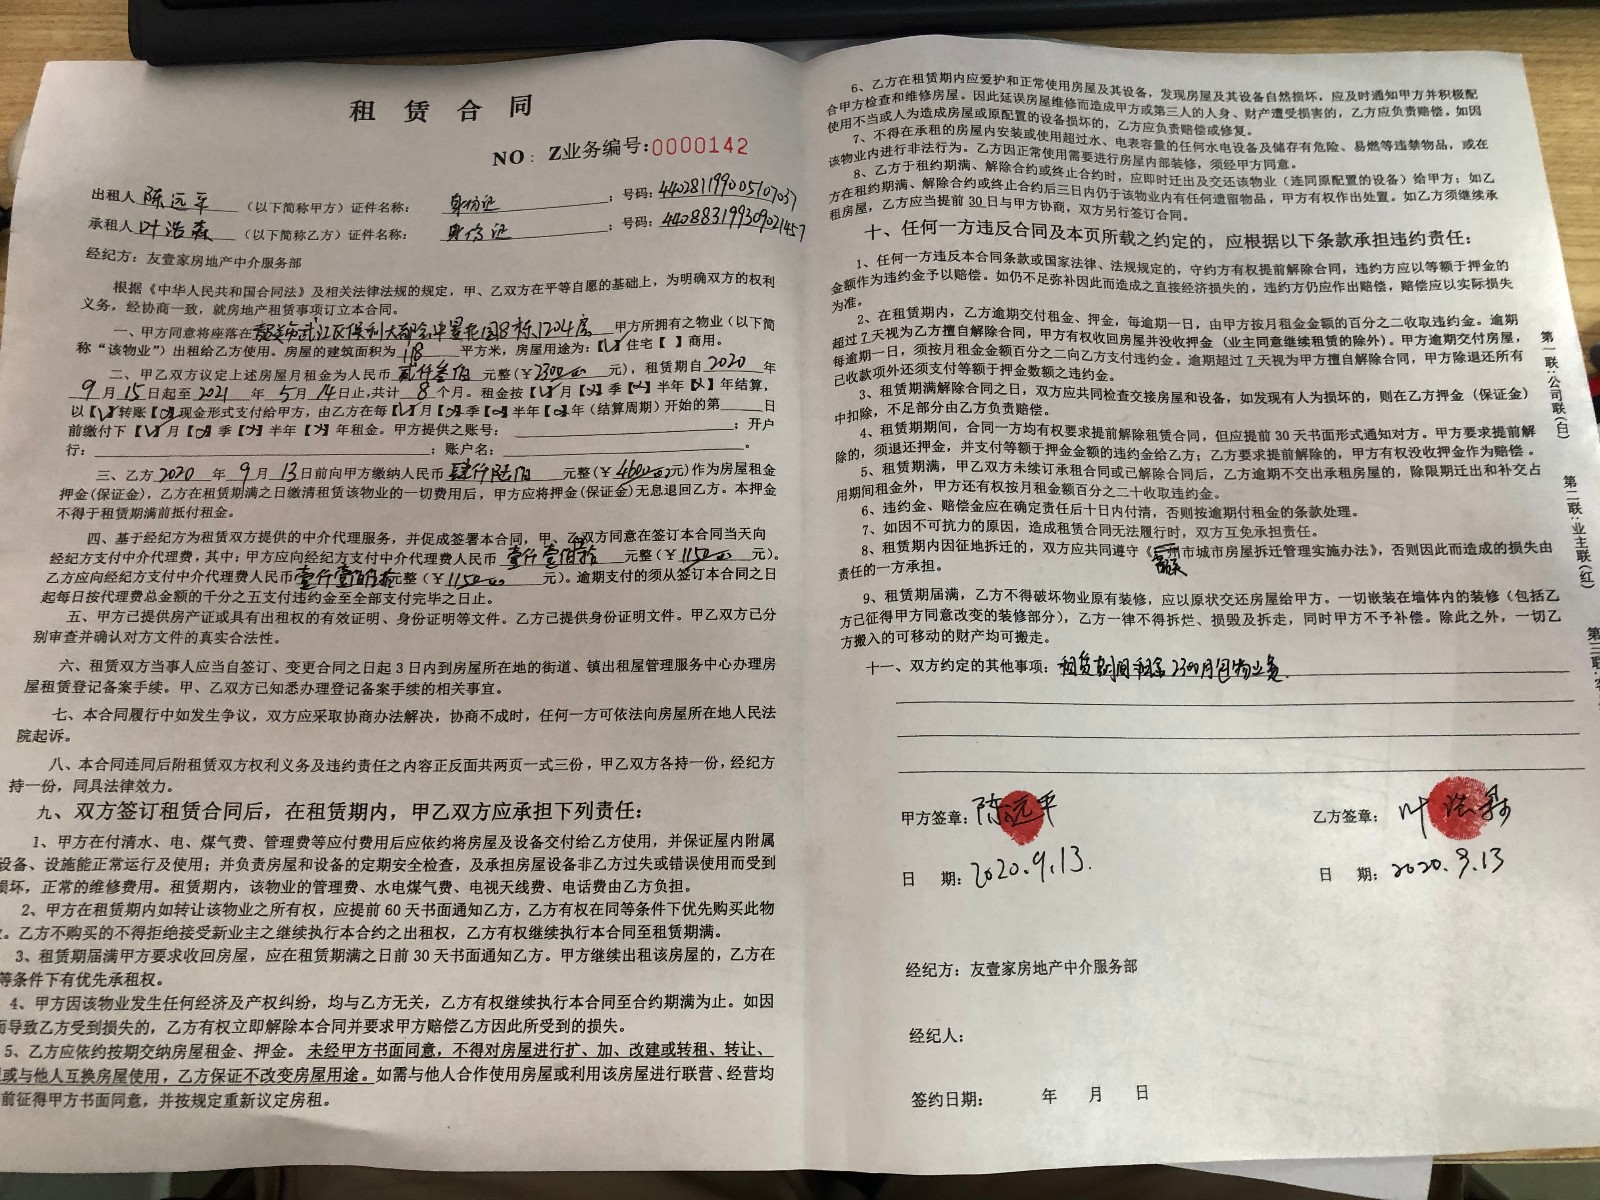 租赁合同
NO：Z业务编号:0000142
出租人 陈远平 （以下简称甲方）证件名称： 身份证 ；号码：440281199005107037
承租人 叶浩森 （以下简称乙方）证件名称： 身份证 ；号码：440883199309021457
经纪方：友壹家房地产中介服务部
根据《中华人民共和国合同法》及相关法律法规的规定，甲、乙双方在平等自愿的基础上，为明确双方的权利
义务，经协商一致，就房地产租赁事项订立本合同。
一、甲方同意将座落在韶关市武江区保利大都会中景花园8栋1204房 甲方所拥有之物业（以下简
称“该物业”）出租给乙方使用。房屋的建筑面积为 118 平方米，房屋用途为：【√】住宅【 】商用。
二、甲乙双方议定上述房屋月租金为人民币 贰仟叁佰 元整（￥2300.00 元），租赁期自 2020 年
9 月 15 日起至 2021 年 5 月 14 日止,共计 8 个月。租金按【√】月【×】季【×】半年【×】年结算，
以【√】转账【 】现金形式支付给甲方，由乙方在每【√】月【 】季【 】半年【 】年（结算周期）开始的第 日
前缴付下【√】月【 】季【 】半年【 】年租金。甲方提供之账号： ；开户
行： ；账户名： 。
三、乙方 2020 年 9 月 13 日前向甲方缴纳人民币 肆仟陆佰 元整（￥4600.00元）作为房屋租金
押金(保证金)，乙方在租赁期满之日缴清租赁该物业的一切费用后，甲方应将押金(保证金)无息退回乙方。本押金
不得于租赁期满前抵付租金。
四、基于经纪方为租赁双方提供的中介代理服务，并促成签署本合同，甲、乙双方同意在签订本合同当天向
经纪方支付中介代理费，其中：甲方应向经纪方支付中介代理费人民币 壹仟壹佰伍拾 元整（￥1150.00 元）。
乙方应向经纪方支付中介代理费人民币壹仟壹佰伍拾元整（￥1150.00 元）。逾期支付的须从签订本合同之日
起每日按代理费总金额的千分之五支付违约金至全部支付完毕之日止。
五、甲方已提供房产证或具有出租权的有效证明、身份证明等文件。乙方已提供身份证明文件。甲乙双方已分
别审查并确认对方文件的真实合法性。
六、租赁双方当事人应当自签订、变更合同之日起 3 日内到房屋所在地的街道、镇出租屋管理服务中心办理房
屋租赁登记备案手续。甲、乙双方已知悉办理登记备案手续的相关事宜。
七、本合同履行中如发生争议，双方应采取协商办法解决，协商不成时，任何一方可依法向房屋所在地人民法
院起诉。
八、本合同连同后附租赁双方权利义务及违约责任之内容正反面共两页一式三份，甲乙双方各持一份，经纪方
持一份，同具法律效力。
九、双方签订租赁合同后，在租赁期内，甲乙双方应承担下列责任：
1、甲方在付清水、电、煤气费、管理费等应付费用后应依约将房屋及设备交付给乙方使用，并保证屋内附属
设备、设施能正常运行及使用；并负责房屋和设备的定期安全检查，及承担房屋设备非乙方过失或错误使用而受到
损坏，正常的维修费用。租赁期内，该物业的管理费、水电煤气费、电视天线费、电话费由乙方负担。
2、甲方在租赁期内如转让该物业之所有权，应提前 60 天书面通知乙方，乙方有权在同等条件下优先购买此物
。乙方不购买的不得拒绝接受新业主之继续执行本合约之出租权，乙方有权继续执行本合同至租赁期满。
3、租赁期届满甲方要求收回房屋，应在租赁期满之日前 30 天书面通知乙方。甲方继续出租该房屋的，乙方在
等条件下有优先承租权。
4、甲方因该物业发生任何经济及产权纠纷，均与乙方无关，乙方有权继续执行本合同至合约期满为止。如因
而导致乙方受到损失的，乙方有权立即解除本合同并要求甲方赔偿乙方因此所受到的损失。
5、乙方应依约按期交纳房屋租金、押金。未经甲方书面同意，不得对房屋进行扩、加、改建或转租、转让、
或与他人互换房屋使用，乙方保证不改变房屋用途。如需与他人合作使用房屋或利用该房屋进行联营、经营均
前征得甲方书面同意，并按规定重新议定房租。
6、乙方在租赁期内应爱护和正常使用房屋及其设备，发现房屋及其设备自然损坏，应及时通知甲方并积极配
合甲方检查和维修房屋。因此延误房屋维修而造成甲方或第三人的人身、财产遭受损害的，乙方应负责赔偿，如因
使用不当或人为造成房屋或原配置的设备损坏的，乙方应负责赔偿或修复。
7、不得在承租的房屋内安装或使用超过水、电表容量的任何水电设备及储存有危险、易燃等违禁物品，或在
该物业内进行非法行为。乙方因正常使用需要进行房屋内部装修，须经甲方同意。
8、乙方于租约期满、解除合约或终止合约时，应即时迁出及交还该物业（连同原配置的设备）给甲方；如乙
方在租约期满、解除合约或终止合约后三日内仍于该物业内有任何遗留物品，甲方有权作出处置。如乙方须继续承
租房屋，乙方应当提前 30 日与甲方协商，双方另行签订合同。
十、任何一方违反合同及本页所载之约定的，应根据以下条款承担违约责任：
1、任何一方违反本合同条款或国家法律、法规规定的，守约方有权提前解除合同，违约方应以等额于押金的
金额作为违约金予以赔偿。如仍不足弥补因此而造成之直接经济损失的，违约方仍应作出赔偿，赔偿应以实际损失
为准。
2、在租赁期内，乙方逾期交付租金、押金，每逾期一日，由甲方按月租金金额的百分之二收取违约金。逾期
超过 7 天视为乙方擅自解除合同，甲方有权收回房屋并没收押金（业主同意继续租赁的除外）。甲方逾期交付房屋，
每逾期一日，须按月租金金额百分之二向乙方支付违约金。逾期超过 7 天视为甲方擅自解除合同，甲方除退还所有
已收款项外还须支付等额于押金数额之违约金。
3、租赁期满解除合同之日，双方应共同检查交接房屋和设备，如发现有人为损坏的，则在乙方押金（保证金）
中扣除，不足部分由乙方负责赔偿。
4、租赁期期间，合同一方均有权要求提前解除租赁合同，但应提前 30 天书面形式通知对方。甲方要求提前解
除的，须退还押金，并支付等额于押金金额的违约金给乙方；乙方要求提前解除的，甲方有权没收押金作为赔偿。
5、租赁期满，甲乙双方未续订承租合同或已解除合同后，乙方逾期不交出承租房屋的，除限期迁出和补交占
用期间租金外，甲方还有权按月租金额百分之二十收取违约金。
6、违约金、赔偿金应在确定责任后十日内付清，否则按逾期付租金的条款处理。
7、如因不可抗力的原因，造成租赁合同无法履行时，双方互免承担责任。
8、租赁期内因征地拆迁的，双方应共同遵守《 州市城市房屋拆迁管理实施办法》，否则因此而造成的损失由
韶关
责任的一方承担。
9、租赁期届满，乙方不得破坏物业原有装修，应以原状交还房屋给甲方。一切嵌装在墙体内的装修（包括乙
方已征得甲方同意改变的装修部分），乙方一律不得拆烂、损毁及拆走，同时甲方不予补偿。除此之外，一切乙
方搬入的可移动的财产均可搬走。
十一、双方约定的其他事项：租赁期间租金2300/月包物业费.
甲方签章：陈远平 乙方签章：叶浩森
日 期：2020.9.13. 日 期：2020.9.13
经纪方：友壹家房地产中介服务部
经纪人：
签约日期： 年 月 日
第一联：公司联（白）
第二联：业主联（红）
第三联：